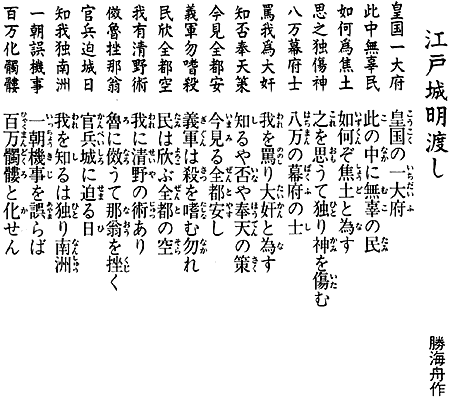 江戸城明渡し
勝海舟作
皇国一大府
此中無辜民
如何爲焦土
思之独傷神
八万幕府士
罵我爲大奸
知否奉天策
今見全都安
義軍勿嗜殺
民欣全都空
我有清野術
傚魯挫那翁
官兵迫城日
知我独南洲
一朝誤機事
百万化髑髏
皇国の一大府
此の中に無辜の民
如何ぞ焦土と為す
之を思うて独り神を傷む
八万の幕府の士
我を罵り大奸と為す
知るや否や奉天の策
今見る全都安し
義軍は殺を嗜む勿れ
民は欣ぶ全都の空
我に清野の術あり
魯に傚うて那翁を挫く
官兵城に迫る日
我を知るは独り南洲
一朝機事を誤らば
百万髑髏と化せん